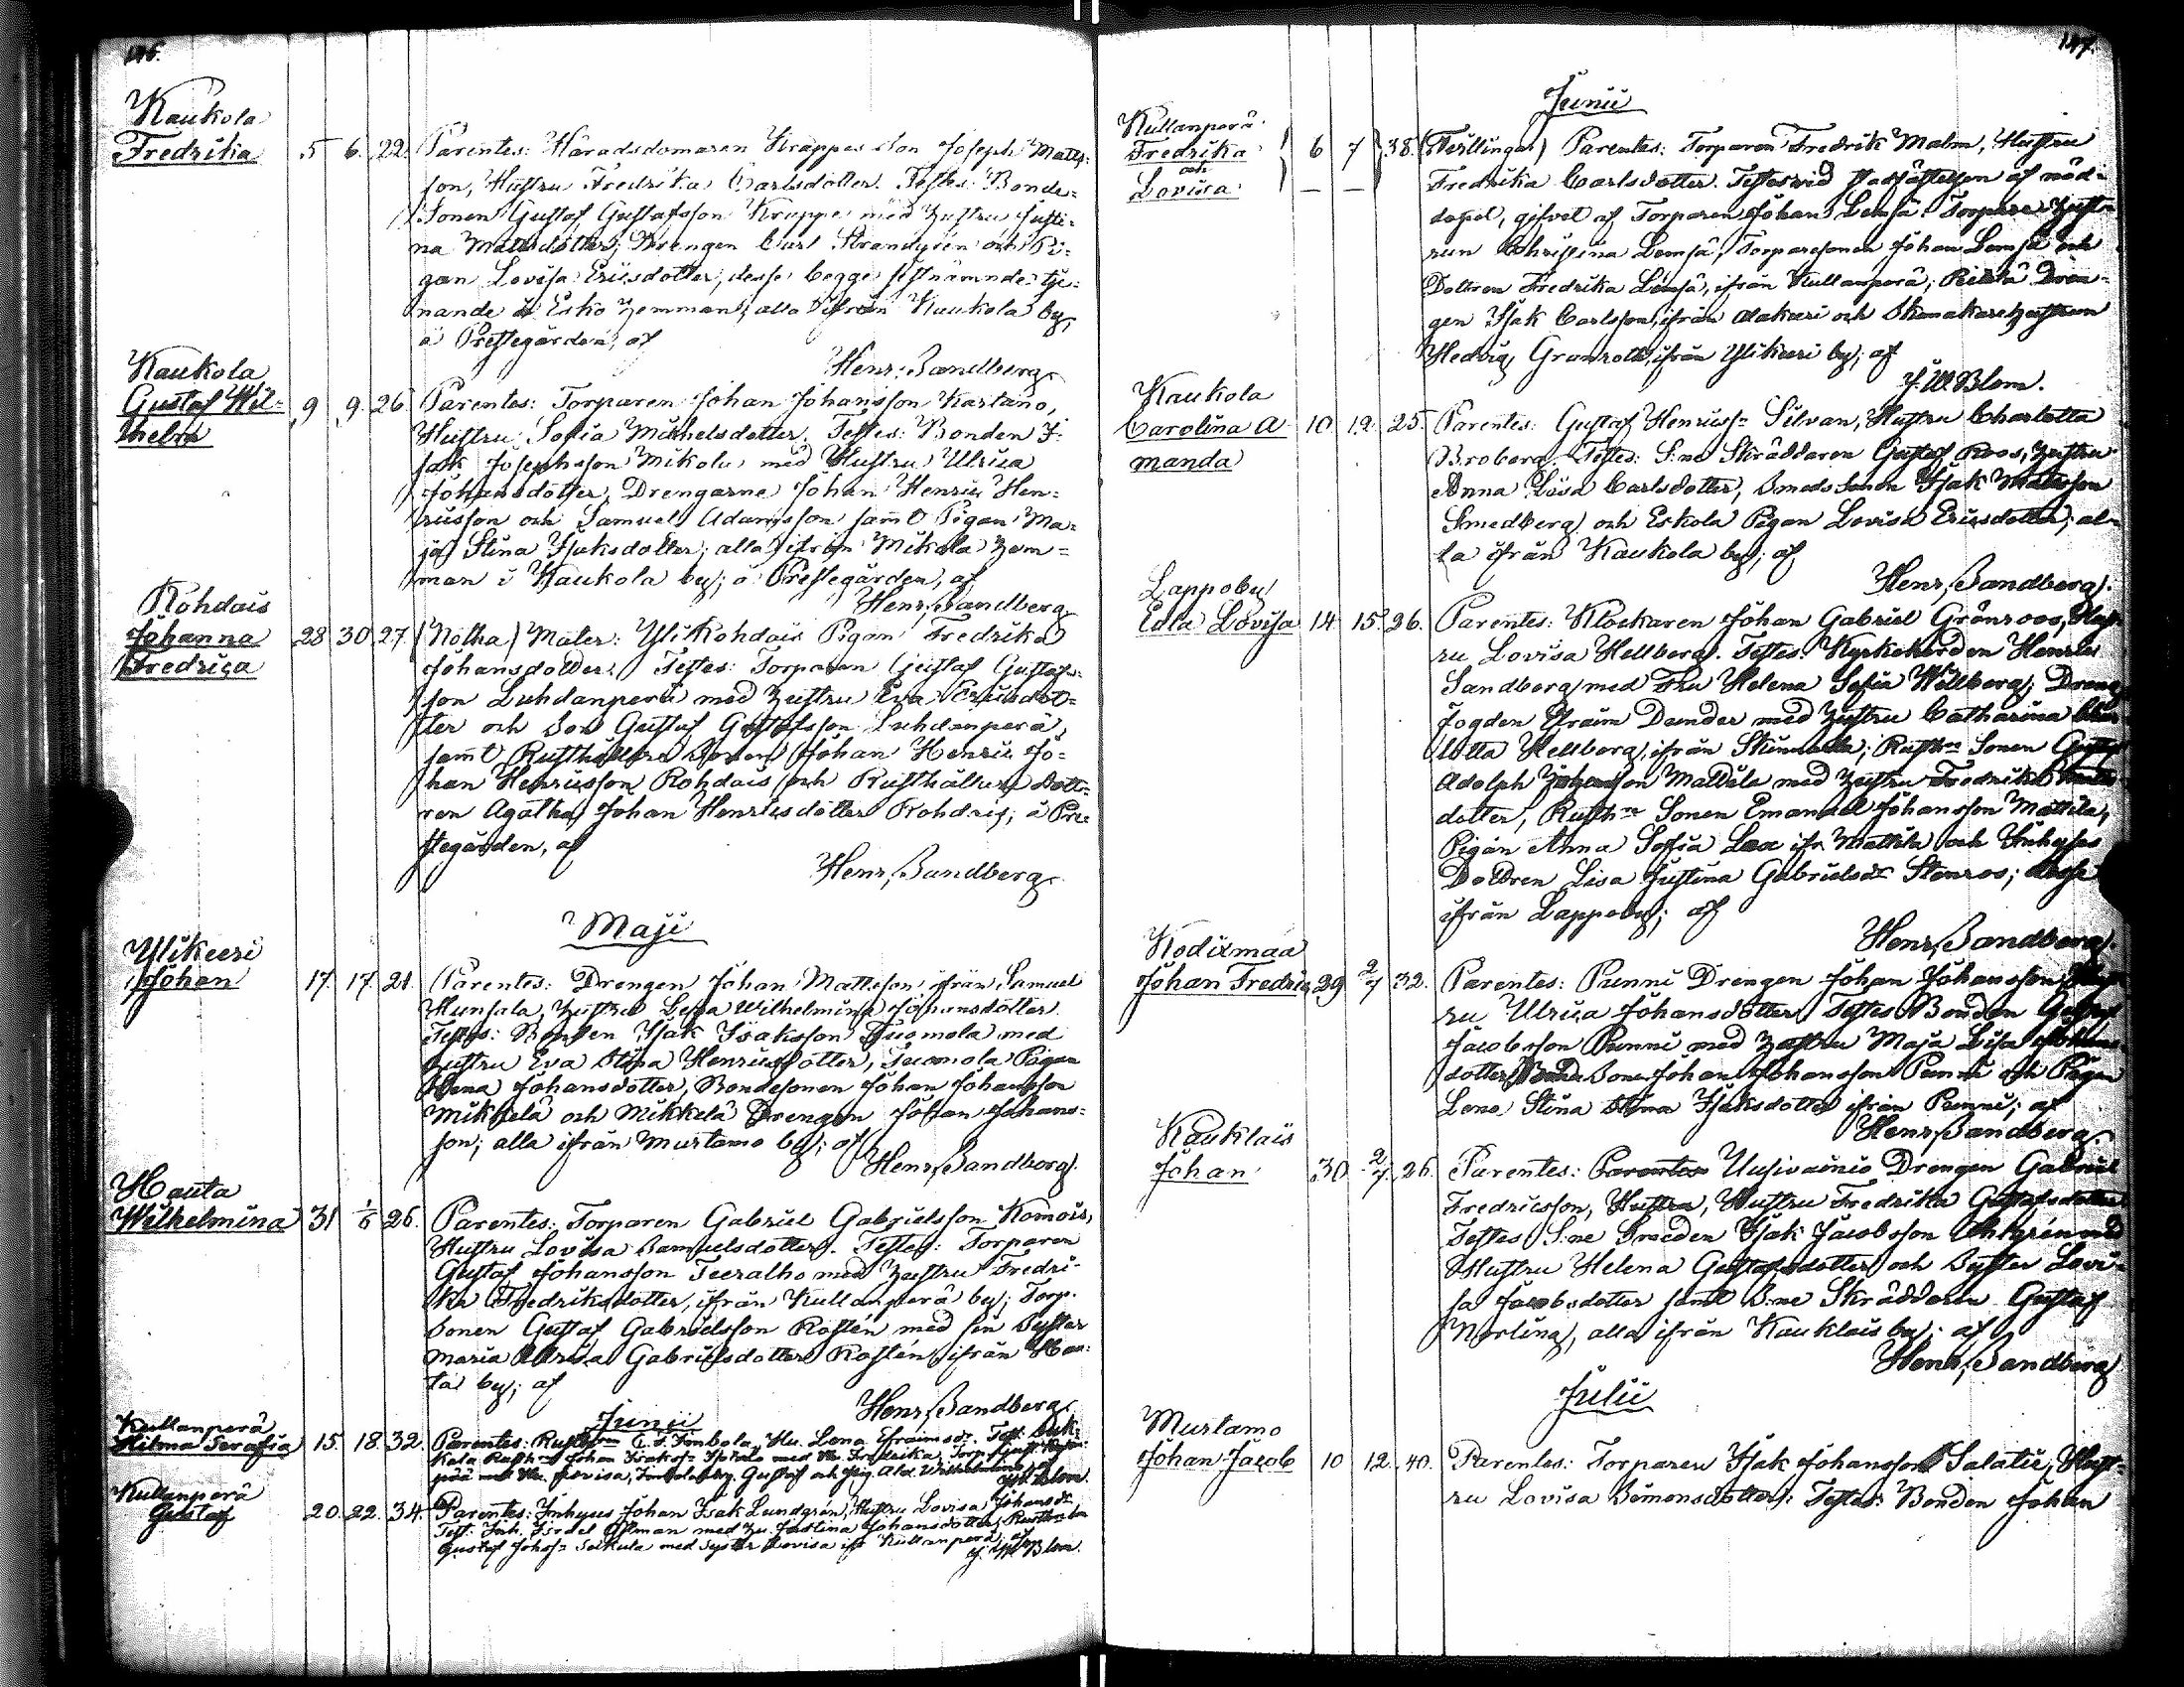 146.
Kaukola
Fredrika 5 6. 22. Parentes: Häradsdomaren Krappes Son Joseph Matts-
son, Hustru Fredrika Carlsdotter. Testes: Bonde-
Sonen Gustaf Gustafsson Krappe med Hustru Justi-
na Mattsdotter; Drengen Carl Strandgrén och Pi-
gan Lovisa Ericsdotter, desse begge sistnämnde tje-
nande å Esko hemman; alla ifrån Kaukola by,
å Prestegården, af
Henr. Sandberg
Kaukola
Gustaf Wil-
helm 9 9. 26 Parentes: Torparen Johan Johansson Kartano,
Hustru Sofia Michelsdotter. Testes: Bonden I-
sak Josephsson Mikola med Hustru Ulrica
Johansdotter, Drengarne Johan Henric Hen-
ricsson och Samuel Adamsson samt Pigan Ma-
ja Stina Isaksdotter; alla ifrån Mikola hem-
man i Kaukola by; å Prestegården, af
Henr. Sandberg
Kohdais
Johanna
Fredrica 28 30 27. (Notha) Mater: Yli Kohdais Pigan Fredrika
Johansdotter. Testes: Torparen Gustaf Gustafs-
son Luhdanperä med hustru Eva Ericsdot-
ter och Son Gustaf Gustafsson Luhdanperä,
samt Rusthållare Sonen Johan Henric Jo-
han Henricsson Kohdais och Rusthållare Dott-
ren Agatha Johan Henricsdotter Kohdais; å Pre-
stegården, af
Henr. Sandberg
Maji
Ylikeeri
Johan 17. 17. 21. Parentes: Drengen Johan Mattsson ifrån Samuel
Hunsala, hustru Lisa Wilhelmina Johansdotter.
Testes: Bonden Isak Isaksson Tuomola med
hustru Eva Stina Henricsdotter, Tuomola Pigan
Johansdotter, Bondesonen Johan Johansson
Mikkelä och Mikkelä Drengen Johan Johans-
son; alla ifrån Murtamo by; af
Henr. Sandberg.
Hauta
Wilhelmina 31 1/6 26. Parentes: Torparen Gabriel Gabrielsson Komois,
Hustru Lovisa Samuelsdotter. Testes: Torparen
Gustaf Johansson Teeralho med hustru Fredri-
ka Fredriksdotter, ifrån Kullanperä by; Torp.
Sonen Gustaf Gabrielsson Rostén med sin Syster
Maria Ulrica Gabrielsdotter Rostén ifrån Hau-
ta by; af
Henr. Sandberg
Junii
Kullanperä
Hilma Serafia 15. 18. 32. Parentes: Hu. Lena Efraimsdr. Test.
Johan Isaksn med Hu. Fredrika,
med Hu. Lovisa, Gustaf och Wilhelmina, af
Blom.
Kullanperä
Gustaf 20. 22. 34. Parentes: Inhyses Johan Isak Lundgrén, Hustru Lovisa Johansdr
Test: Inh. med hu. Justina Johansdotter,
Gustaf med Syster Lovisa ifr. Kullanperä, af
J. W. Blom.
147.
Junii
Kullanperä
Fredrika
och
Lovisa 6 7 38. (Tvillingar) Parentes: Torparen Fredrik Malm, Hustru
Fredrika Carlsdotter. Testes vid stadfästelsen af nöd-
dopet, gifvet af Torparen Johan Lemsä: Torpare hust-
run Christina Lemsä, Torparesonen Johan Lemsä och
Dottren Fredrika Lemsä, ifrån Kullanperä; Drän-
gen Isak Carlsson, ifrån Alakeeri och Skomakarehustrun
Hedvig Grönroth, ifrån Ylikeeri by; af
J. W. Blom.
Kaukola
Carolina A-
manda 10. 12. 25. Parentes: Gustaf Henricsn Silvan, Hustru Charlotta
Broberg. Testes: S:ne Skräddaren Gustaf Roos, hustru
Anna Lisa Carlsdotter, Smeds Sonen Isak Mattsson
Smedberg och Eskola Pigan Lovisa Ericsdotter; al-
la ifrån Kaukola by; af
Henr. Sandberg.
Lappoby
Edla Lovisa 14 15. 26. Parentes: Klockaren Johan Gabriel Grönroos, Hust-
ru Lovisa Hellberg. Testes: Kyrkoherden Henric
Sandberg med Fru Helena Sofia Willberg; Dreng
fogden Efraim Dunder med hustru Catharina Char
lotta Hellberg, ifrån Rusthn Sonen Gustaf
Adolph Johansson Mattila med hustru Fredrika
dotter, Rusthn Sonen Emanuel Johansson Mattila,
Pigan Anna Sofia ifr. Mattila och Inhyses
Dottren Lisa Justina Gabrielsdr Stenroos; desse
ifrån Lappoby; af
Henr. Sandberg.
Kodixmaa
Johan Fredric 29 2/7 32. Parentes: Punni Drengen Johan Johansson, Hust
ru Ulrica Johansdotter. Testes Bonden Gustaf
Jacobsson Punni med hustru Maja Lisa Johans
dotter, Bonde Sonen Johan Johansson Punni och Pigan
Lena Stina Isaksdotter ifrån Punni; af
Henr. Sandberg.
Kauklais
Johan 30 2/7. 26. Parentes: Uusivainio Drengen Gabriel
Fredricsson, Hustru, Hustru Fredrika Gustafsdotter
Testes S:ne Smeden Isak Jacobsson med
Hustru Helena Gustafsdotter och Syster Lovi-
sa Jacobsdotter samt S:ne Skräddaren Gustaf
Norling, alla ifrån Kauklais by; af
Henr. Sandberg
Julii
Murtamo
Johan Jacob 10 12. 40. Parentes: Torparen Isak Johansson Salatie, Hust-
ru Lovisa Simonsdotter. Testes: Bonden Johan